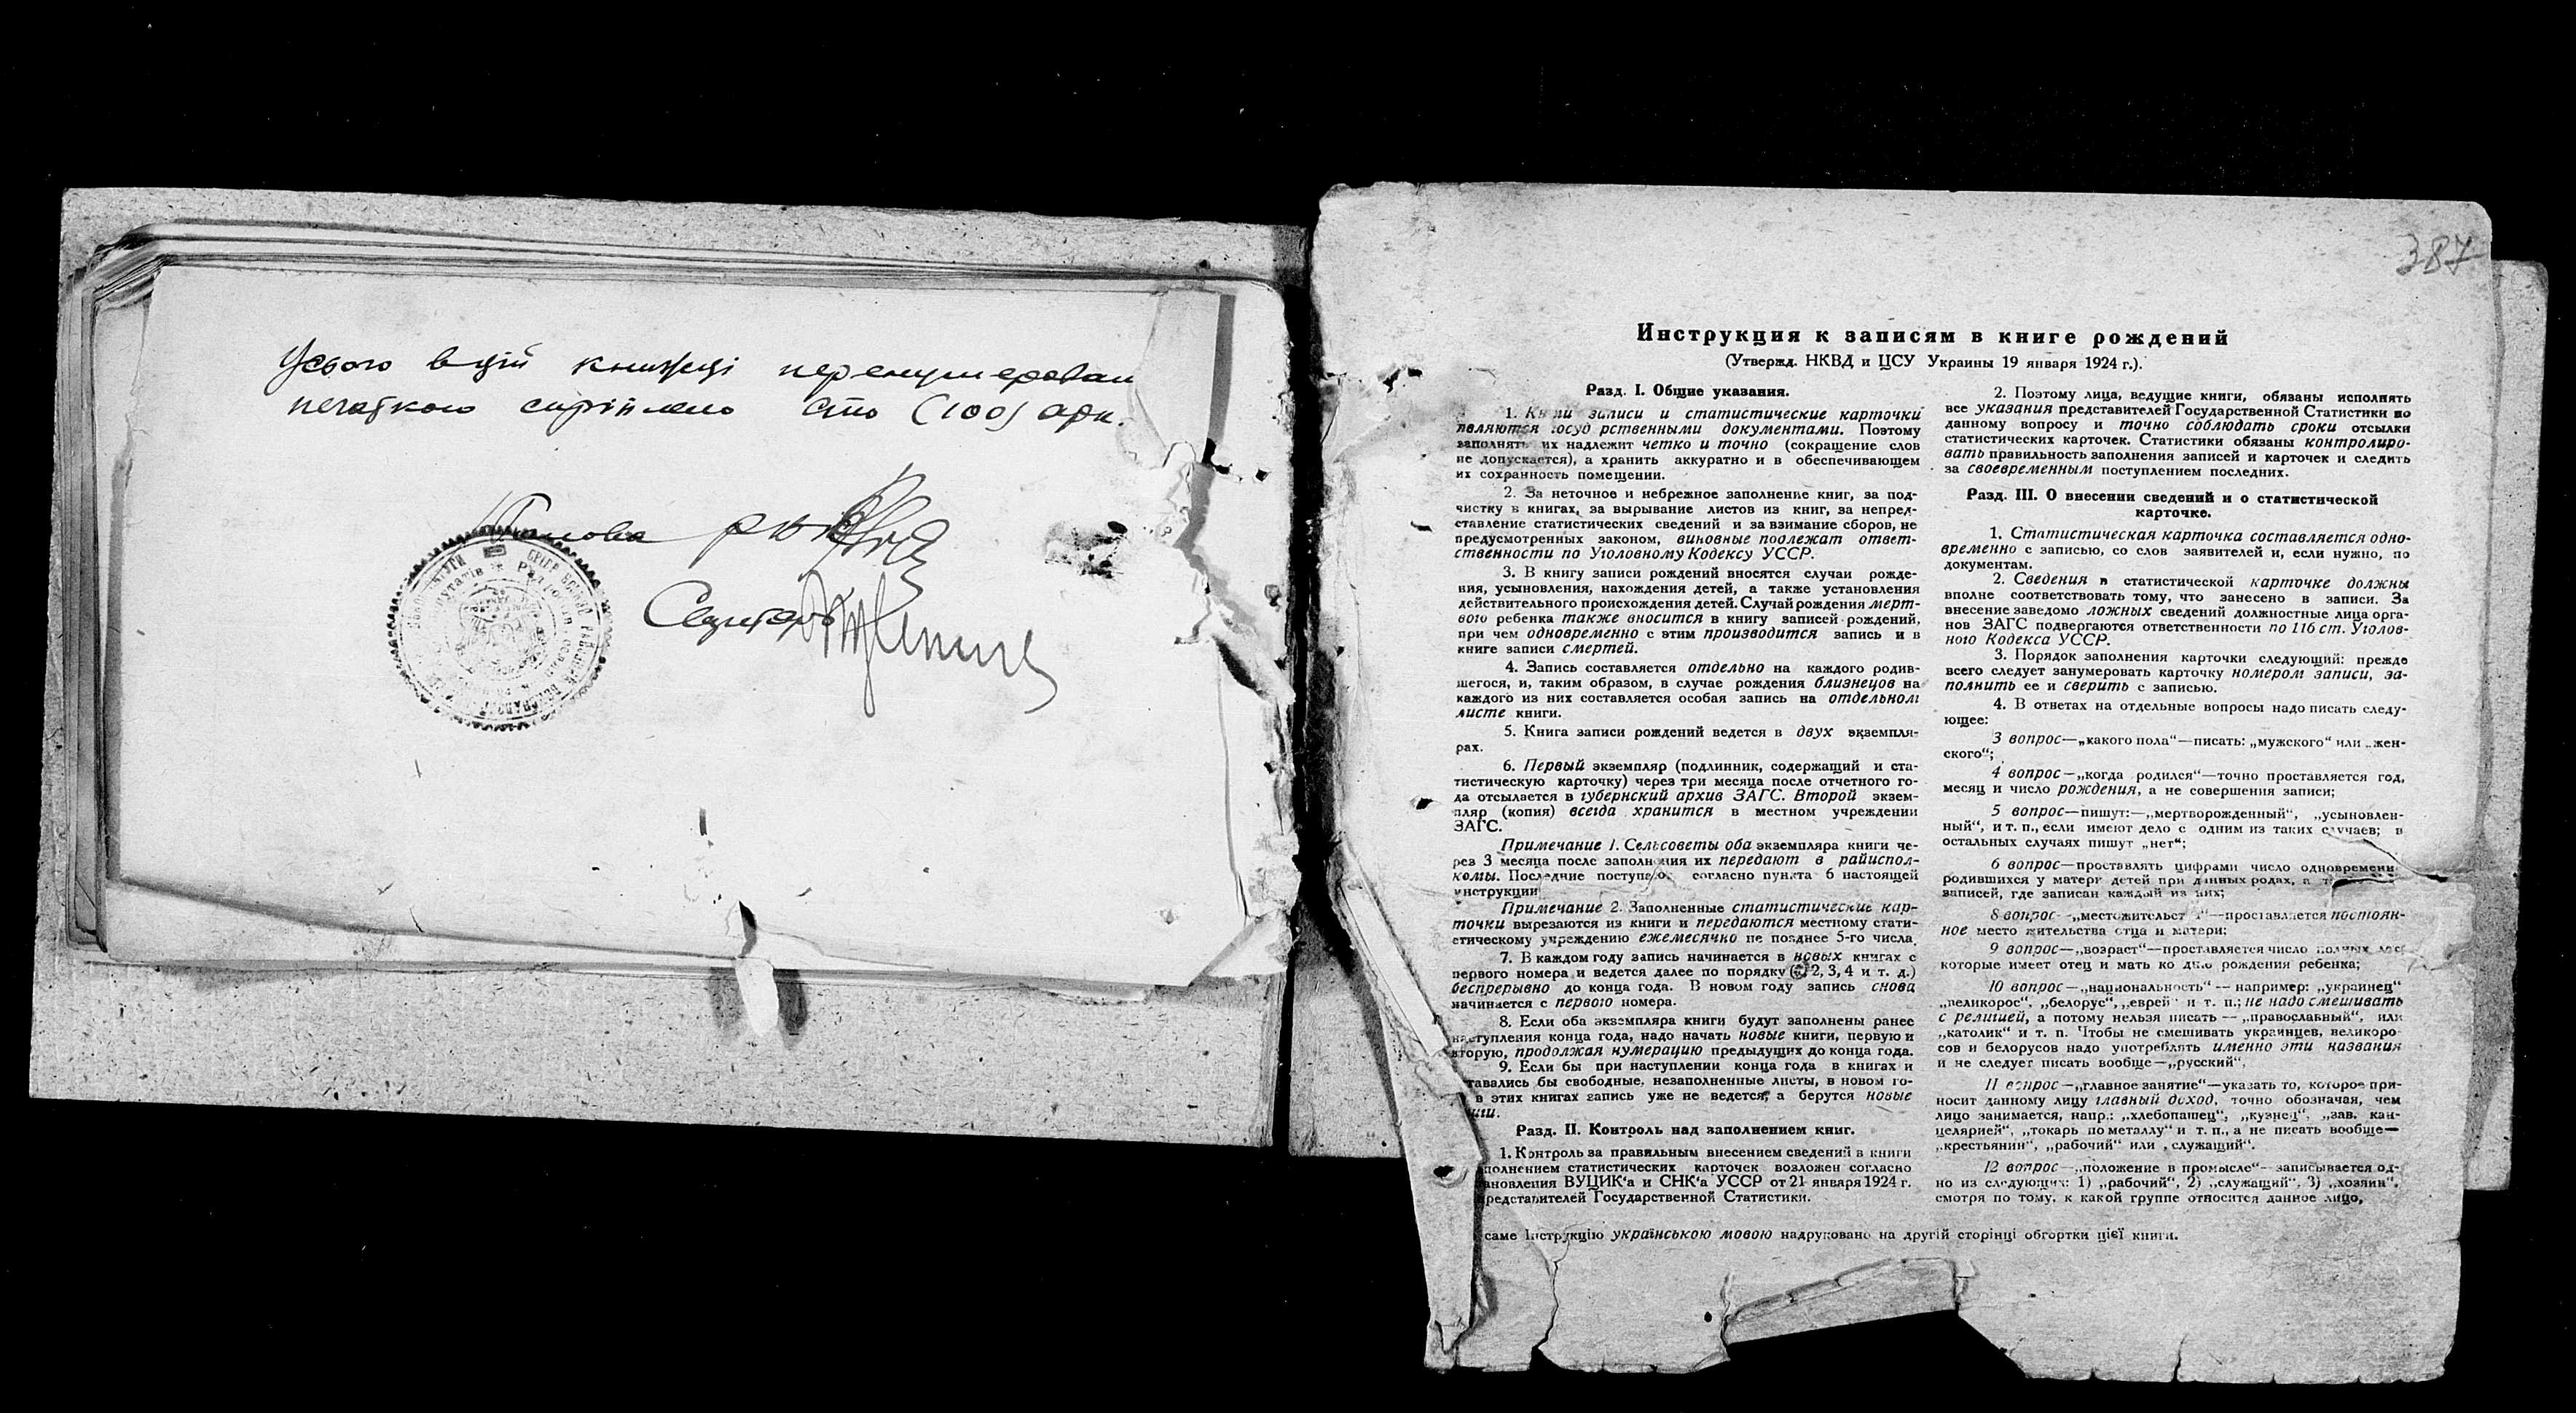 Усього в цій книжеці перенумерован
печаткою скріплено сто (100) арк.
Голова
Секретарь
387
Инструкция к записям в книге рождений
(Утвержд. НКВД и ЦСУ Украины 19 января 1924 г.).
Разд. I. Общие указания.
1. Книги записи и статистические карточки
являются государственными документами. Поэтому
заполнять их надлежит четко и точно (сокращение слов
не допускается), а хранить аккуратно и в обеспечивающем
их сохранность помещении.
2. За неточное и небрежное заполнение книг, за под-
чистку в книгах, за вырывание листов из книг, за непред-
ставление статистических сведений и за взимание сборов, не
предусмотренных законом, виновные подлежат ответ-
ственности по Уголовному Кодексу УССР.
3. В книгу записи рождений вносятся случаи рожде-
ния, усыновления, нахождения детей, а также установления
действительного происхождения детей. Случай рождения мерт-
вого ребенка также вносится в книгу записей рождений,
при чем одновременно с этим производится запись и в
книге записи смертей.
4. Запись составляется отдельно на каждого родив-
шегося, и, таким образом, в случае рождения близнецов на
каждого из них составляется особая запись на отдельном
листе книги.
5. Книга записи рождений ведется в двух экземпля-
рах.
6. Первый экземпляр (подлинник, содержащий и ста-
тистическую карточку) через три месяца после отчетного го-
да отсылается в губернский архив ЗАГС. Второй экзем-
пляр (копия) всегда хранится в местном учреждении
ЗАГС.
Примечание 1. Сельсоветы оба экземпляра книги че-
рез 3 месяца после заполнения их передают в райиспол-
комы. Последние поступают согласно пункта 6 настоящей
инструкции
Примечание 2. Заполненные статистические кар-
точки вырезаются из книги и передаются местному стати-
стическому учреждению ежемесячно не позднее 5-го числа.
7. В каждом году запись начинается в новых книгах с
первого номера и ведется далее по порядку (1, 2, 3, 4 и т. д.)
беспрерывно до конца года. В новом году запись снова
начинается с первого номера.
8. Если оба экземпляра книги будут заполнены ранее
наступления конца года, надо начать новые книги, первую и
вторую, продолжая нумерацию предыдущих до конца года.
9. Если бы при наступлении конца года в книгах и
тавались бы свободные, незаполненные листы, в новом го-
в этих книгах запись уже не ведется, а берутся новые
иги.
Разд. II. Контроль над заполнением книг.
1. Контроль за правильным внесением сведений в книги
полнением статистических карточек возложен согласно
ановления ВУЦИК'а и СНК'а УССР от 21 января 1924 г.
редставителей Государственной Статистики.
2. Поэтому лица, ведущие книги, обязаны исполнять
все указания представителей Государственной Статистики по
данному вопросу и точно соблюдать сроки отсылки
статистических карточек. Статистики обязаны контролиро-
вать правильность заполнения записей и карточек и следить
за своевременным поступлением последних.
Разд. III. О внесении сведений и о статистической
карточке.
1. Статистическая карточка составляется одно-
временно с записью, со слов заявителей и, если нужно, по
документам.
2. Сведения в статистической карточке должны
вполне соответствовать тому, что занесено в записи. За
внесение заведомо ложных сведений должностные лица орга-
нов ЗАГС подвергаются ответственности по 116 ст. Уголов-
ного Кодекса УССР.
3. Порядок заполнения карточки следующий: прежде
всего следует занумеровать карточку номером записи, за-
полнить ее и сверить с записью.
4. В ответах на отдельные вопросы надо писать следу-
ющее:
3 вопрос—„какого пола“—писать: „мужского“ или „жен-
ского“;
4 вопрос—„когда родился“—точно проставляется год,
месяц и число рождения, а не совершения записи;
5 вопрос—пишут:—„мертворожденный“, „усыновлен-
ный“, и т. п., если имеют дело с одним из таких случаев; в
остальных случаях пишут „нет“;
6 вопрос—проставлять цифрами число одновременно
родившихся у матери детей при данных родах, а
записей, где записан каждый из них;
8 вопрос—„местожительст “—проставляется постоян-
ное место жительства отца и матери;
9 вопрос—„возраст“—проставляется число полных лет
которые имеет отец и мать ко дню рождения ребенка;
10 вопрос—„национальность“ — например: „украинец“
„великорос“, „белорус“, „еврей“ и т. п.; не надо смешивать
с религией, а потому нельзя писать — „православный“, или
„католик“ и т. п. Чтобы не смешивать украинцев, великоро
сов и белорусов надо употреблять именно эти названия
и не следует писать вообще—„русский“,
11 вопрос—„главное занятие“—указать то, которое при-
носит данному лицу главный доход, точно обозначая, чем
лицо занимается, напр.: „хлебопашец“, „кузнец“, „зав. кан-
целярией“, „токарь по металлу“ и т. п., а не писать вообще—
„крестьянин“, „рабочий“ или „служащий“.
12 вопрос—„положение в промысле“—записывается од-
но из следующих: 1) „рабочий“, 2) „служащий“, 3) „хозяин“,
смотря по тому, к какой группе относится данное лицо,
саме Інструкцію українською мовою надруковано на другій сторінці обгортки цієї книги.